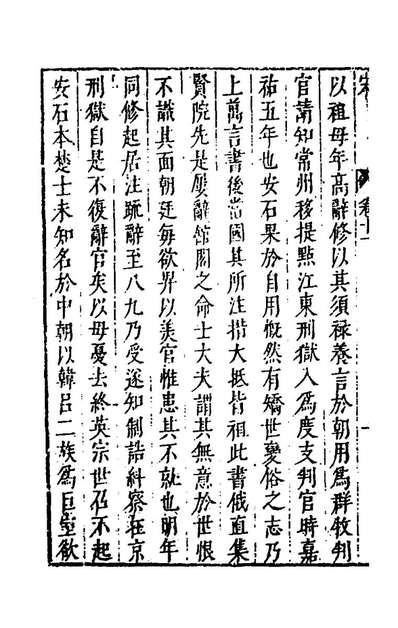 宋 卷十一
以祖母年高辭修以其須祿養言於朝用爲群牧判
官請知常州移提點江東刑獄入爲度支判官時嘉
祐五年也安石果於自用慨然有矯世變俗之志乃
上萬言書後當國其所注措大抵皆祖此書俄直集
賢院先是屢辭館閣之命士大夫謂其無意於世恨
不識其面朝廷每欲畀以美官惟患其不就也明年
同修起居注䟽辭至八九乃受遂知制誥糾察在京
刑獄自是不復辭官矣以母憂去終英宗世召不起
安石本楚士未知名於中朝以韓呂二族爲巨室欲